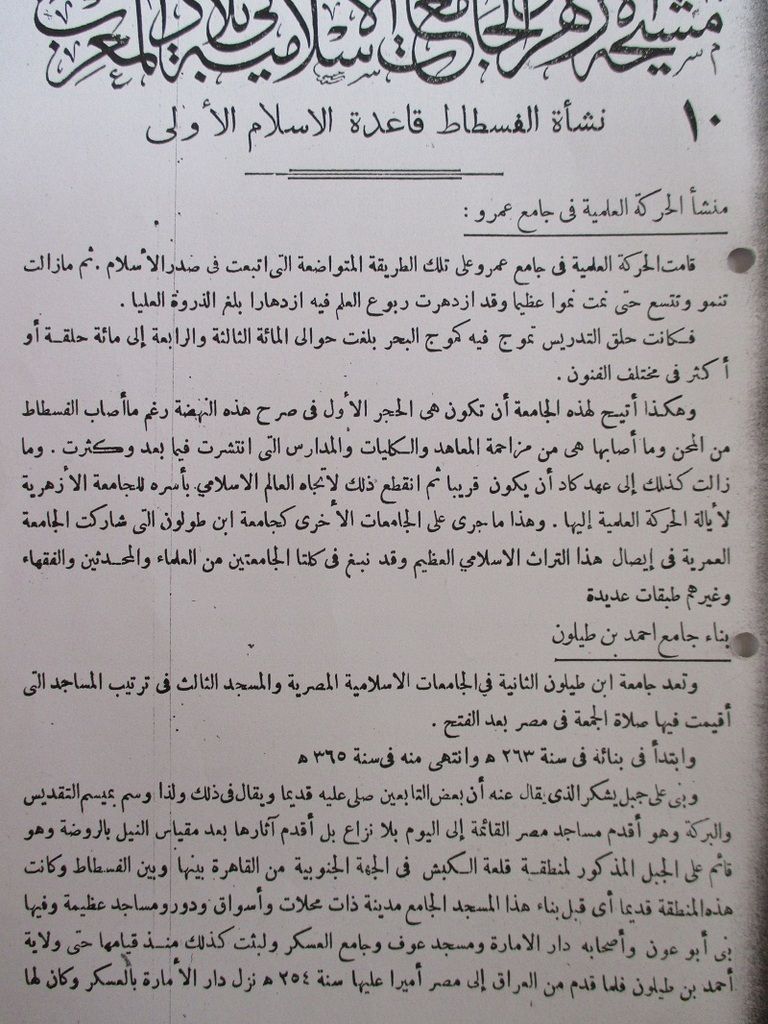 مشيخة الأزهر الجامع الاسلامية في بلاد المغرب
١٠
نشأة الفسطاط قاعدة الاسلام الأولى
منشأ الحركة العلمية فى جامع عمرو :
قامت الحركة العلمية فى جامع عمرو على تلك الطريقة المتواضعة التى اتبعت فى صدر الأسلام . ثم مازالت
تنمو وتتسع حتى نمت نموا عظيما وقد ازدهرت ربوع العلم فيه ازدهارا بلغ الذروة العليا .
فكانت حلق التدريس تموج فيه كموج البحر بلغت حوالى المائة الثالثة والرابعة إلى مائة حلقة أو
أكثر فى مختلف الفنون .
وهكذا أتيح لهذه الجامعة أن تكون هى الحجر الأول فى صرح هذه النهضة رغم ماأصاب الفسطاط
من المحن وما أصابها هى من مزاحمة المعاهد والكليات والمدارس التى انتشرت فيما بعد وكثرت . وما
زالت كذلك إلى عهد كاد أن يكون قريبا ثم انقطع ذلك لاتجاه العالم الاسلامي بأسره للجامعة الأزهرية
لأيالة الحركة العلمية إليها . وهذا ماجرى على الجامعات الأخرى كجامعة ابن طولون التى شاركت الجامعة
العمرية فى إيصال هذا التراث الاسلامي العظيم وقد نبغ فى كلتا الجامعتين من العلماء والمحدثين والفقهاء
وغيرهم طبقات عديدة
بناء جامع احمد بن طيلون
وتعد جامعة ابن طيلون الثانية في الجامعات الاسلامية المصرية والمسجد الثالث فى ترتيب المساجد التى
أقيمت فيها صلاة الجمعة فى مصر بعد الفتح .
وابتدأ فى بنائه فى سنة ٢٦٣ ه وانتهى منه فى سنة ٣٦٥ ه
وبنى على جبل يشكر الذى يقال عنه أن بعض التابعين صلى عليه قديما ويقال فى ذلك ولذا وسم بميسم التقديس
والبركة وهو أقدم مساجد مصر القائمة إلى اليوم بلا نزاع بل أقدم آثارها بعد مقياس النيل بالروضة وهو
قائم على الجبل المذكور لمنطقة قلعة الكبش فى الجهة الجنوبية من القاهرة بينها وبين الفسطاط وكانت
هذه المنطقة قديما أى قبل بناء هذا المسجد الجامع مدينة ذات محلات وأسواق ودور ومساجد عظيمة وفيها
بنى أبو عون وأصحابه دار الامارة ومسجد عوف وجامع العسكر ولبثت كذلك منذ قيامها حتى ولاية
أحمد بن طيلون فلما قدم من العراق إلى مصر أميرا عليها سنة ٢٥٤ ه نزل دار الأمارة بالعسكر وكان لها